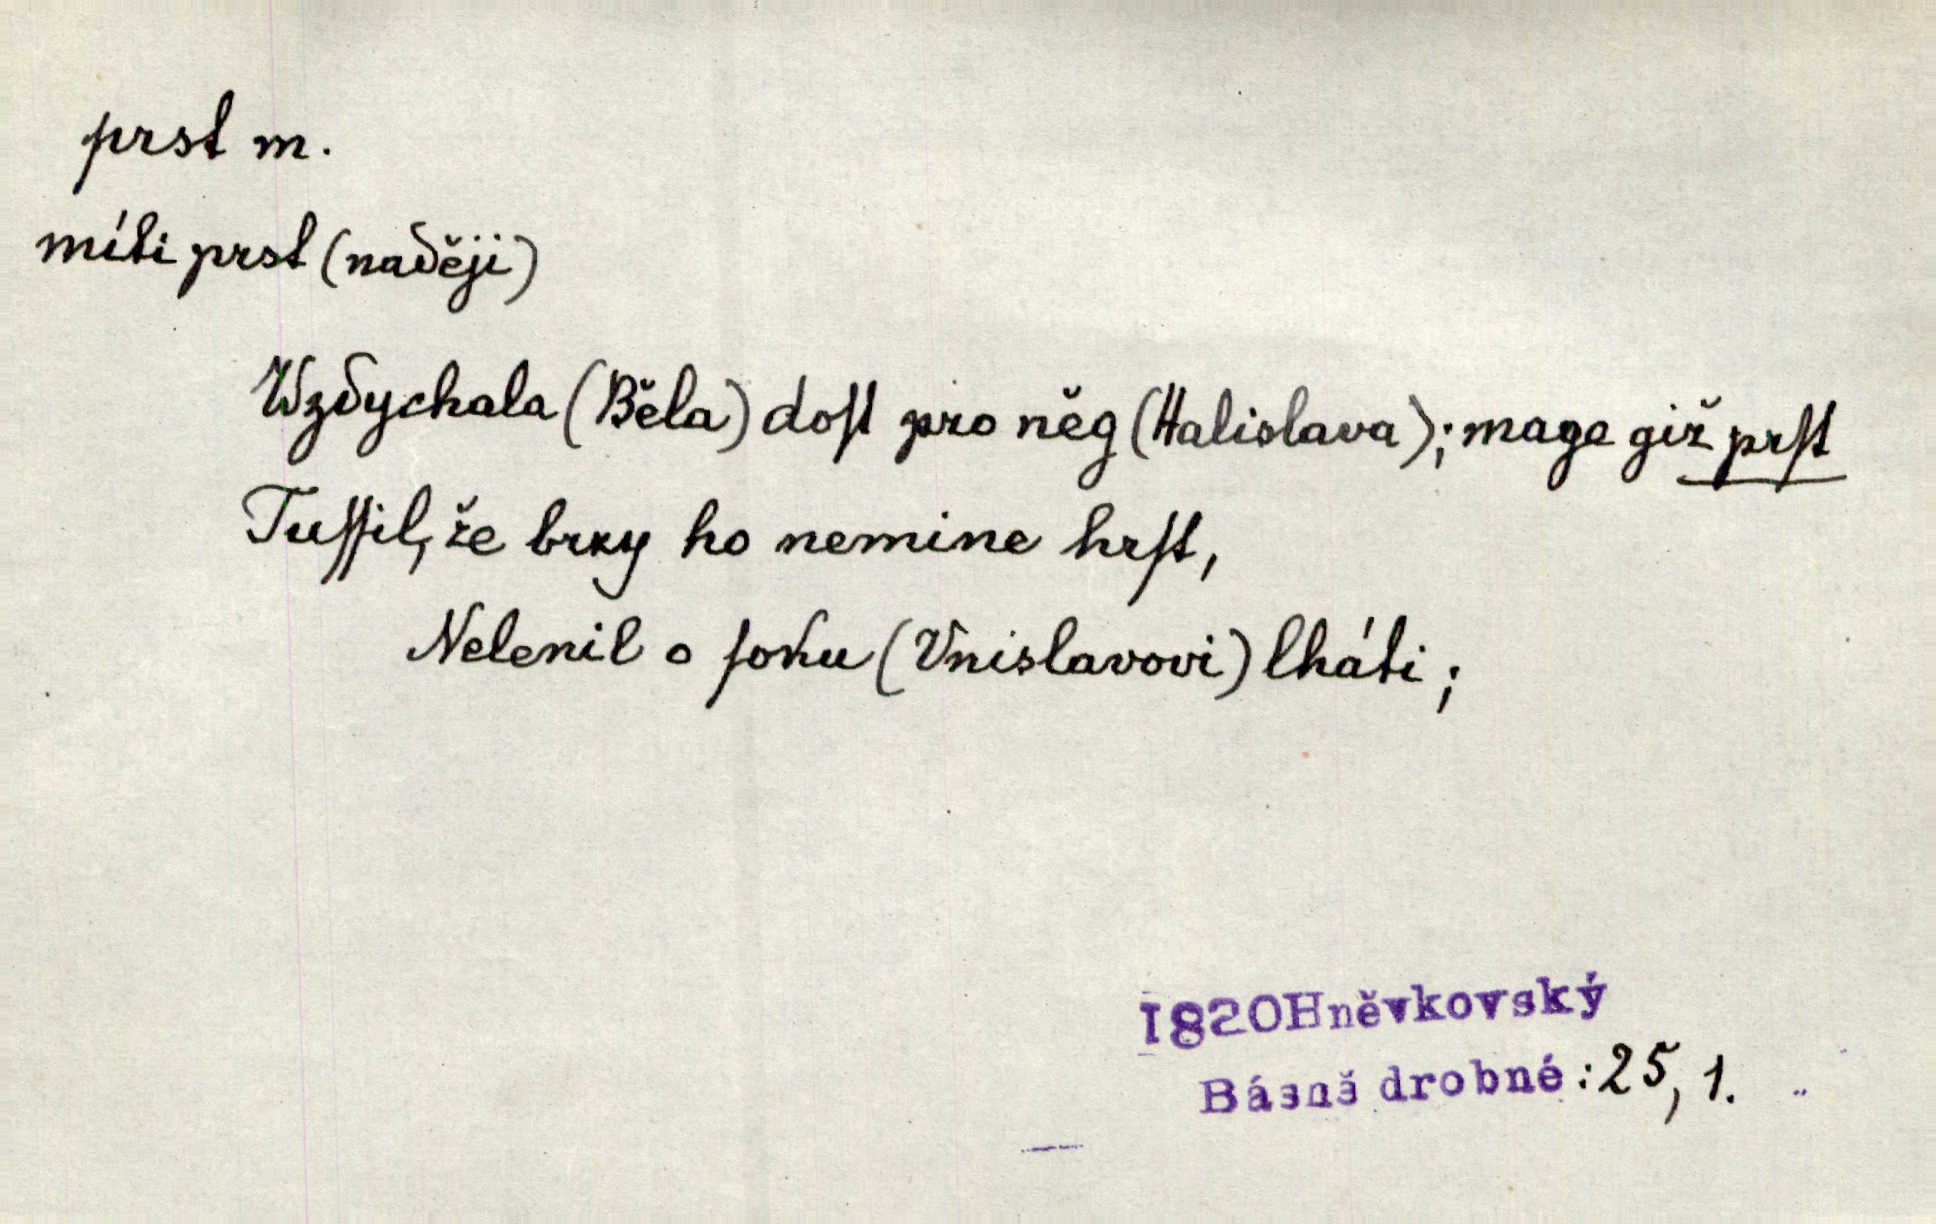 prst m.
míti prst (naději)
Wzdychala (Běla) doſt pro něg (Halislava); maga giž prſt
Tuſſil, že brky ho nemine hrſt,
Nelenil o ſoku (Vnislavovi) lháti;
1820Hněvkovský
Básně drobné: 25, 1.